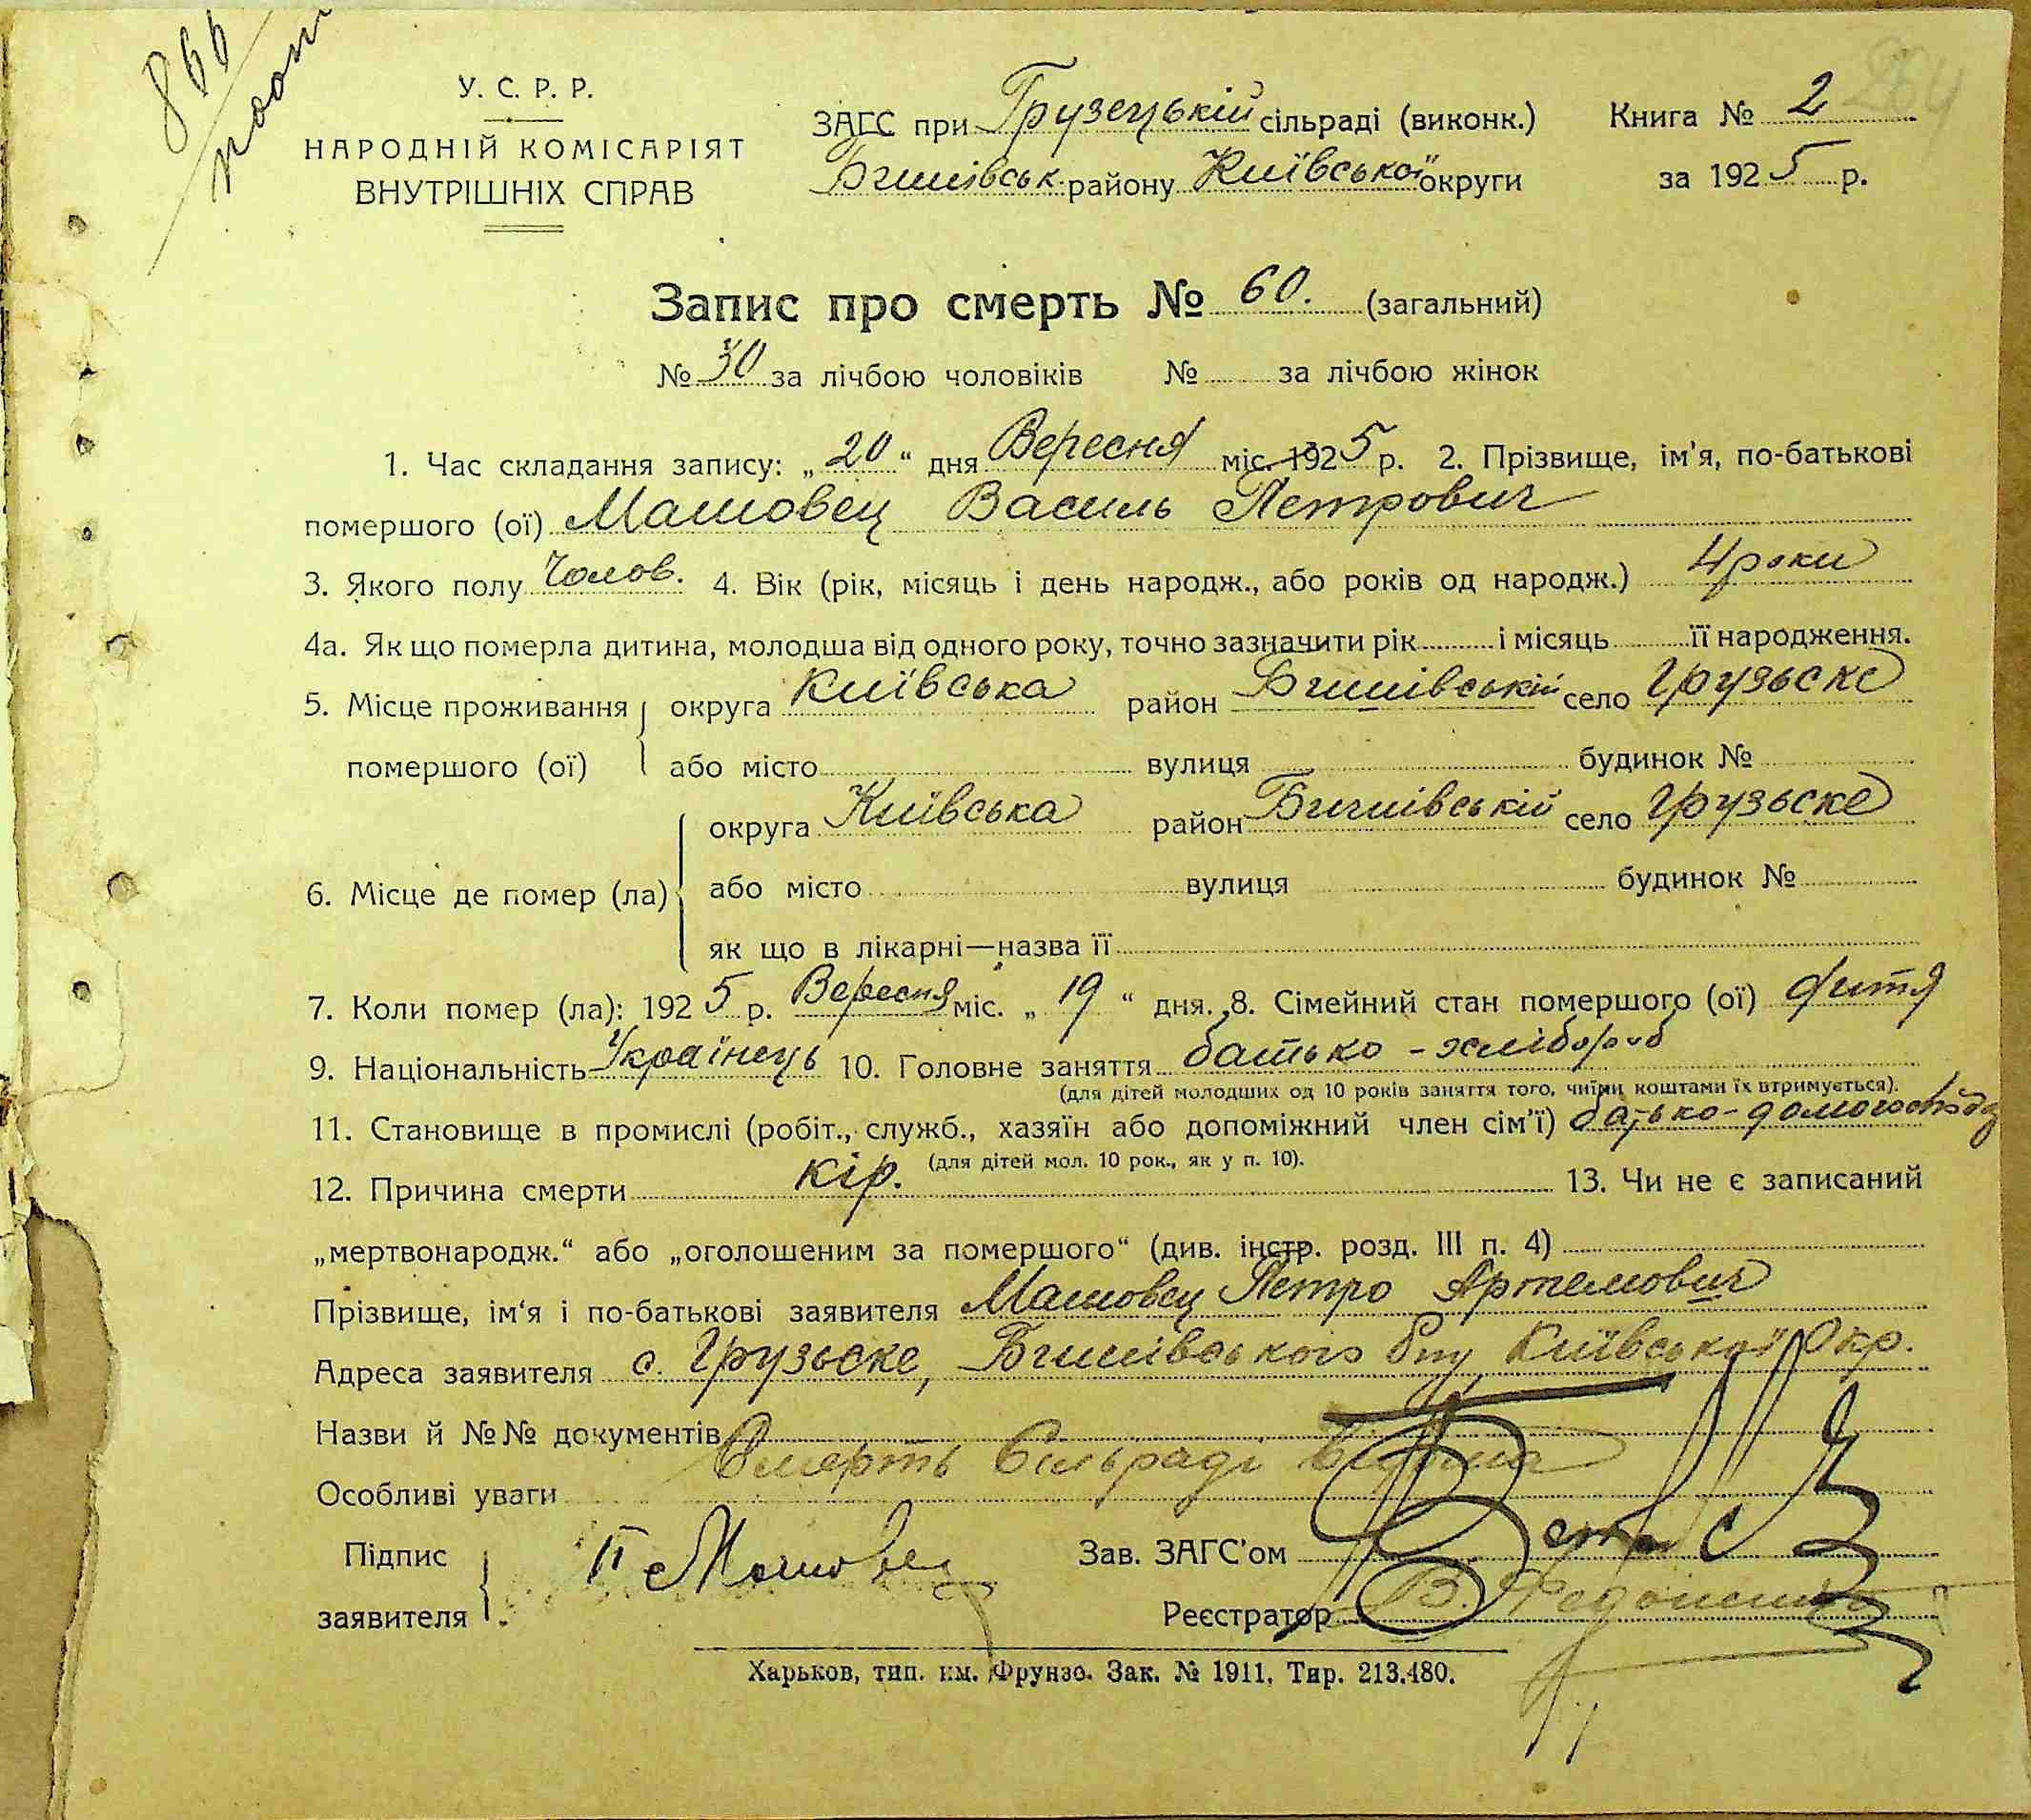 866
264
У. С. Р. Р.
НАРОДНІЙ КОМІСАРІЯТ
ВНУТРІШНІХ СПРАВ
ЗАГС при Грузецькій сільраді (виконк.)
Бишівськ. району Київської округи
Книга № 2
за 1925 р.
Запис про смерть № 60. (загальний)
№ 30 за лічбою чоловіків № за лічбою жінок
1. Час складання запису: „20“ дня Вересня міс. 1925 р. 2. Прізвище, ім'я, по-батькові
помершого (ої) Машовец Василь Петрович
3. Якого полу Чолов. 4. Вік (рік, місяць і день народж., або років од народж.) 4 роки
4а. Як що померла дитина, молодша від одного року, точно зазначити рік і місяць її народження.
5. Місце проживання округа Київська район Бишівській село Грузьске
помершого (ої) або місто вулиця будинок №
округа Київська район Бишівській село Грузьске
6. Місце де помер (ла) або місто вулиця будинок №
як що в лікарні—назва її
7. Коли помер (ла): 1925 р. Вересня міс. „19“ дня. 8. Сімейний стан помершого (ої) дитя
9. Національність Українець 10. Головне заняття батько - хлібороб
(для дітей молодших од 10 років заняття того, чиїми коштами їх втримується).
11. Становище в промислі (робіт., служб., хазяїн або допоміжний член сім'ї) батько-домогосподар
(для дітей мол. 10 рок., як у п. 10).
12. Причина смерти кір. 13. Чи не є записаний
„мертвонародж.“ або „оголошеним за помершого“ (див. інстр. розд. III п. 4)
Прізвище, ім‘я і по-батькові заявителя Машовец Петро Артемович
Адреса заявителя с. Грузьске, Бишівського Київської Окр.
Назви й №№ документів
Смерть Сільраді відома
Особливі уваги
Підпис
заявителя П Машовец
Зав. ЗАГС'ом
Реєстратор В.
Харьков, тип. им. Фрунзе. Зак. № 1911, Тир. 213.480.